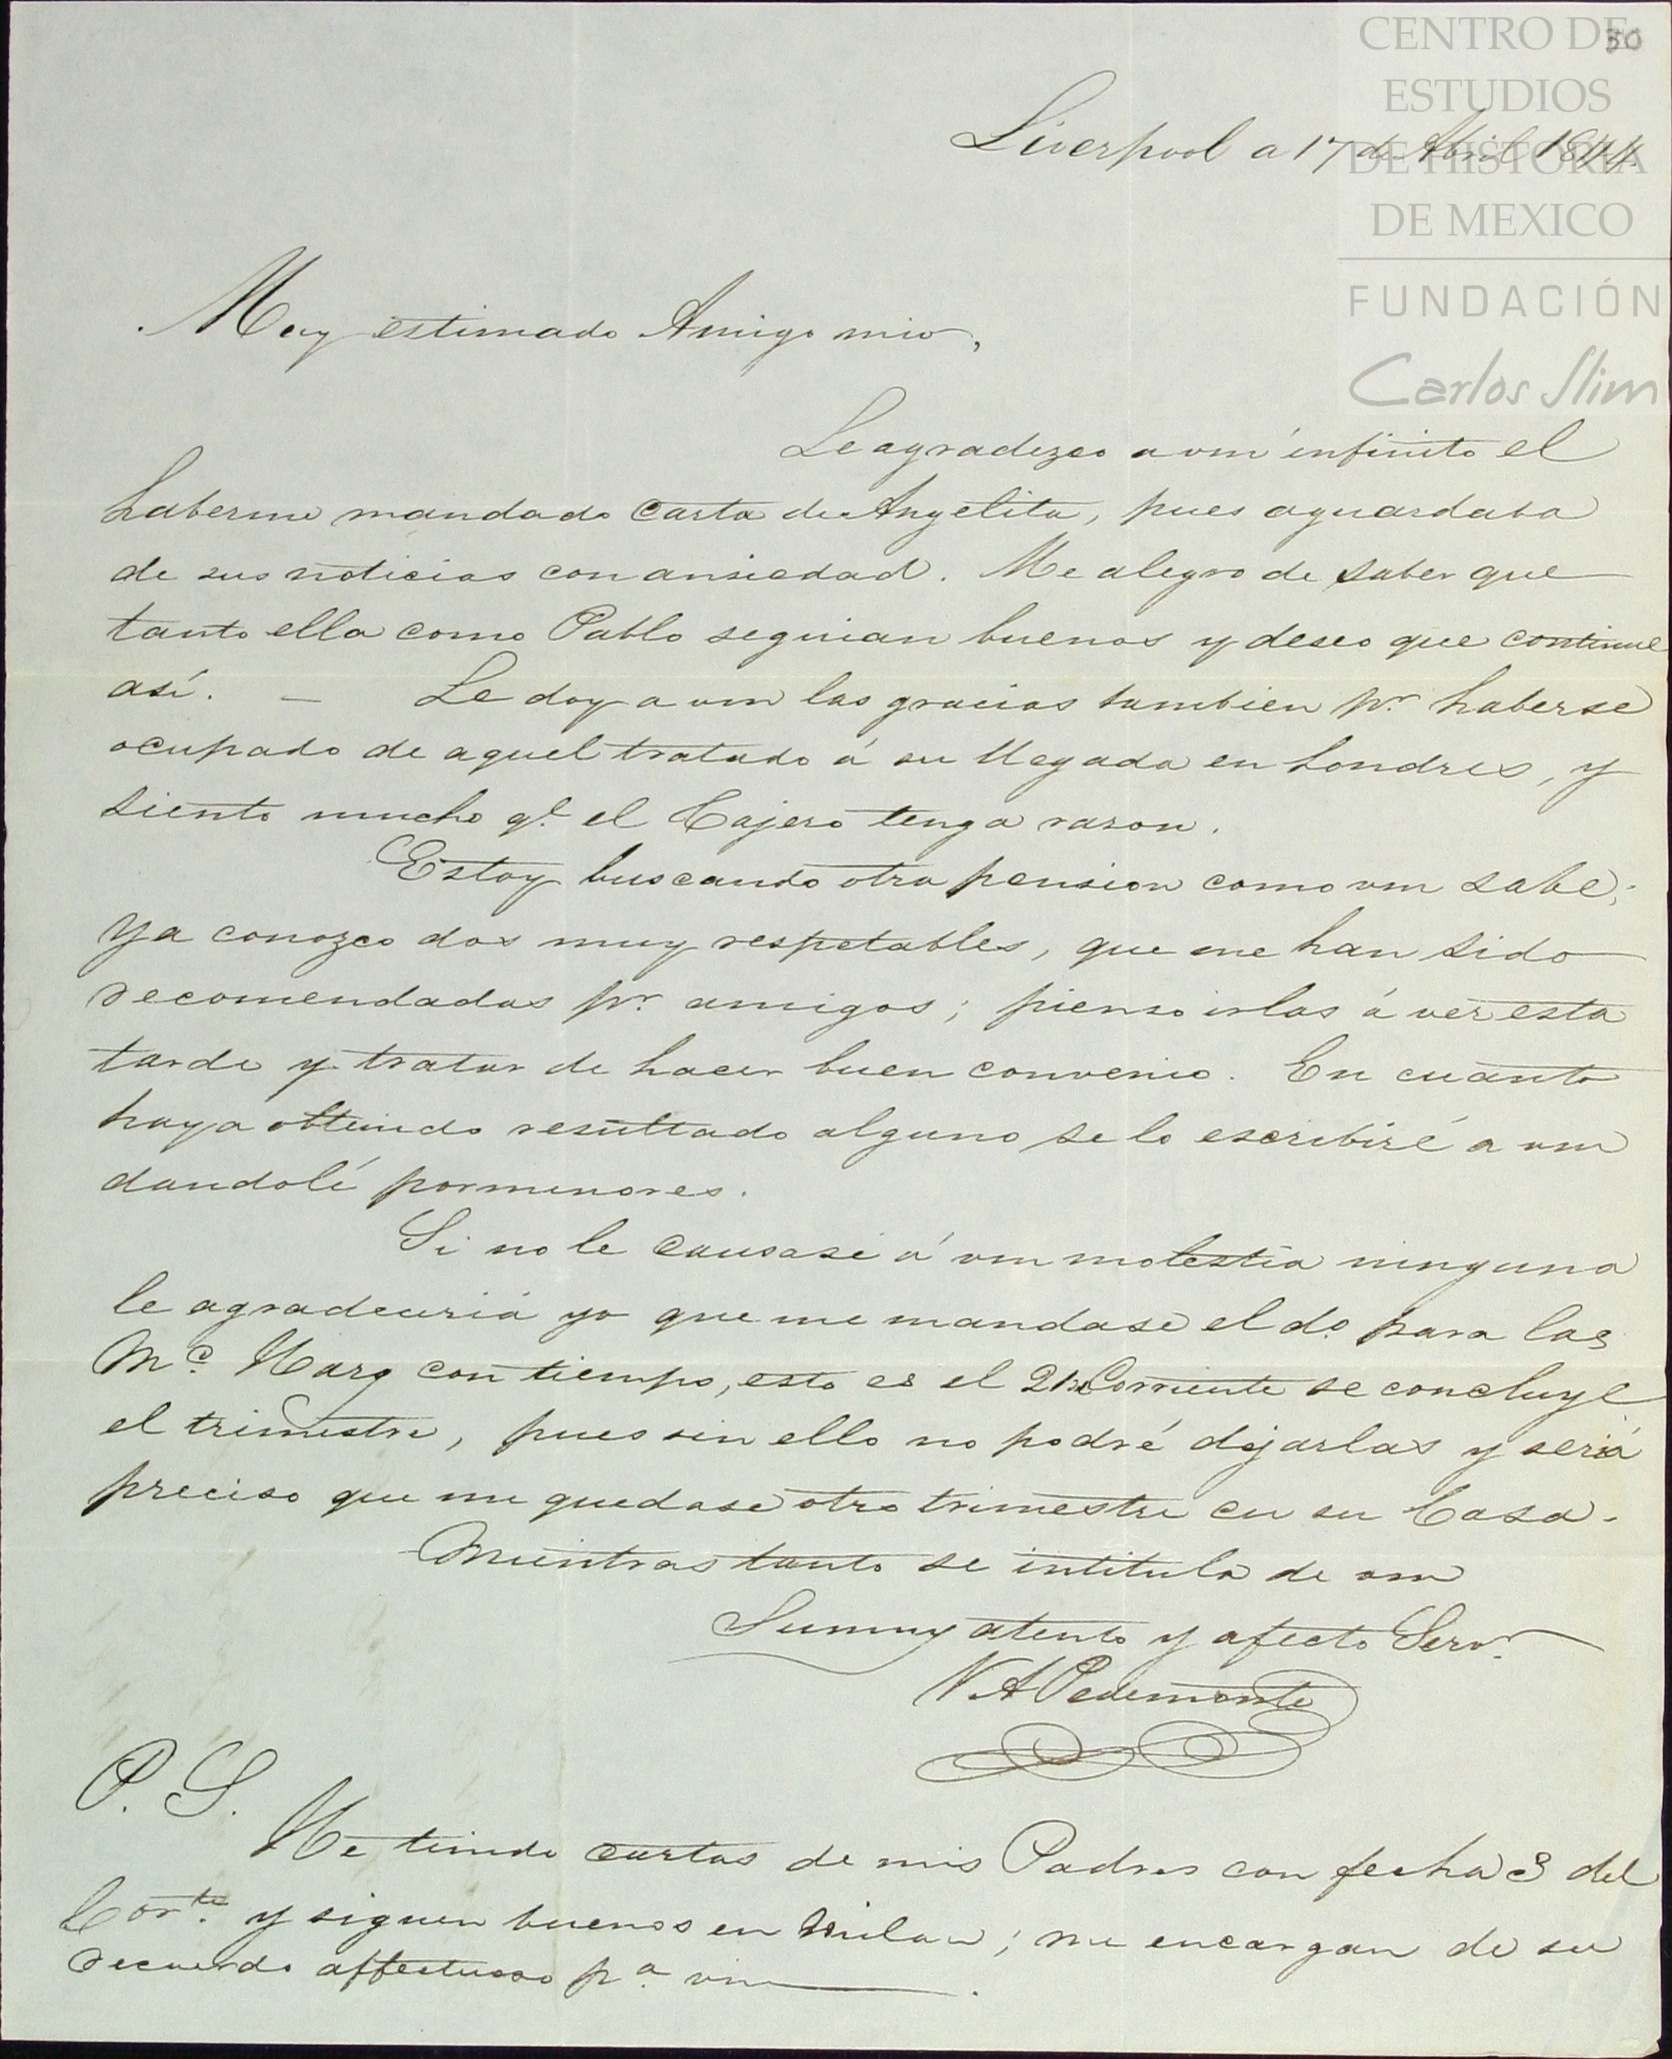 CENTRO DE
ESTUDIOS
DE HISTORIA
DE MEXICO
FUNDACIÓN
Carlos Slim
30
Liverpool a 17 de Abril 1844.
Muy estimado Amigo mio,
Le agradezco a vm infinito el
haberme mandado carta de Angelita, pues aguardaba
de sus noticias con ansiedad. Me alegro de saber que
tanto ella como Pablo seguian buenos y deseo que continue
así. — Le doy a vm las gracias tambien pr. haberse
ocupado de aquel tratado á su llegada en Londres, y
siento mucho qe. el Cajero tenga rason.
Estoy buscando otra pension como vm sabe;
ya conozco dos muy respetables, que me han sido
recomendadas pr. amigos; pienso irlas á ver esta
tarde y tratar de hacer buen convenio. En cuanto
haya obtenido resultado alguno se lo escribiré a vm
dandolé pormenores.
Si no le causase á vm molestia ninguna
le agradeceriá yo que me mandase el do. para las
Mc. Harg con tiempo, esto es el 21 Corriente se concluye
el trimestre, pues sin ello no podré dejarlas y seriá
preciso que me quedase otro trimestre en su Casa.
Mientras tanto se intitula de vm
Su muy atento y afecto Servr.
N A Pedemonte
P. S.
He tenido cartas de mis Padres con fecha 3 del
Corrte. y siguen buenos en Milan; me encargan de su
recuerdo affectuoso pa. vm